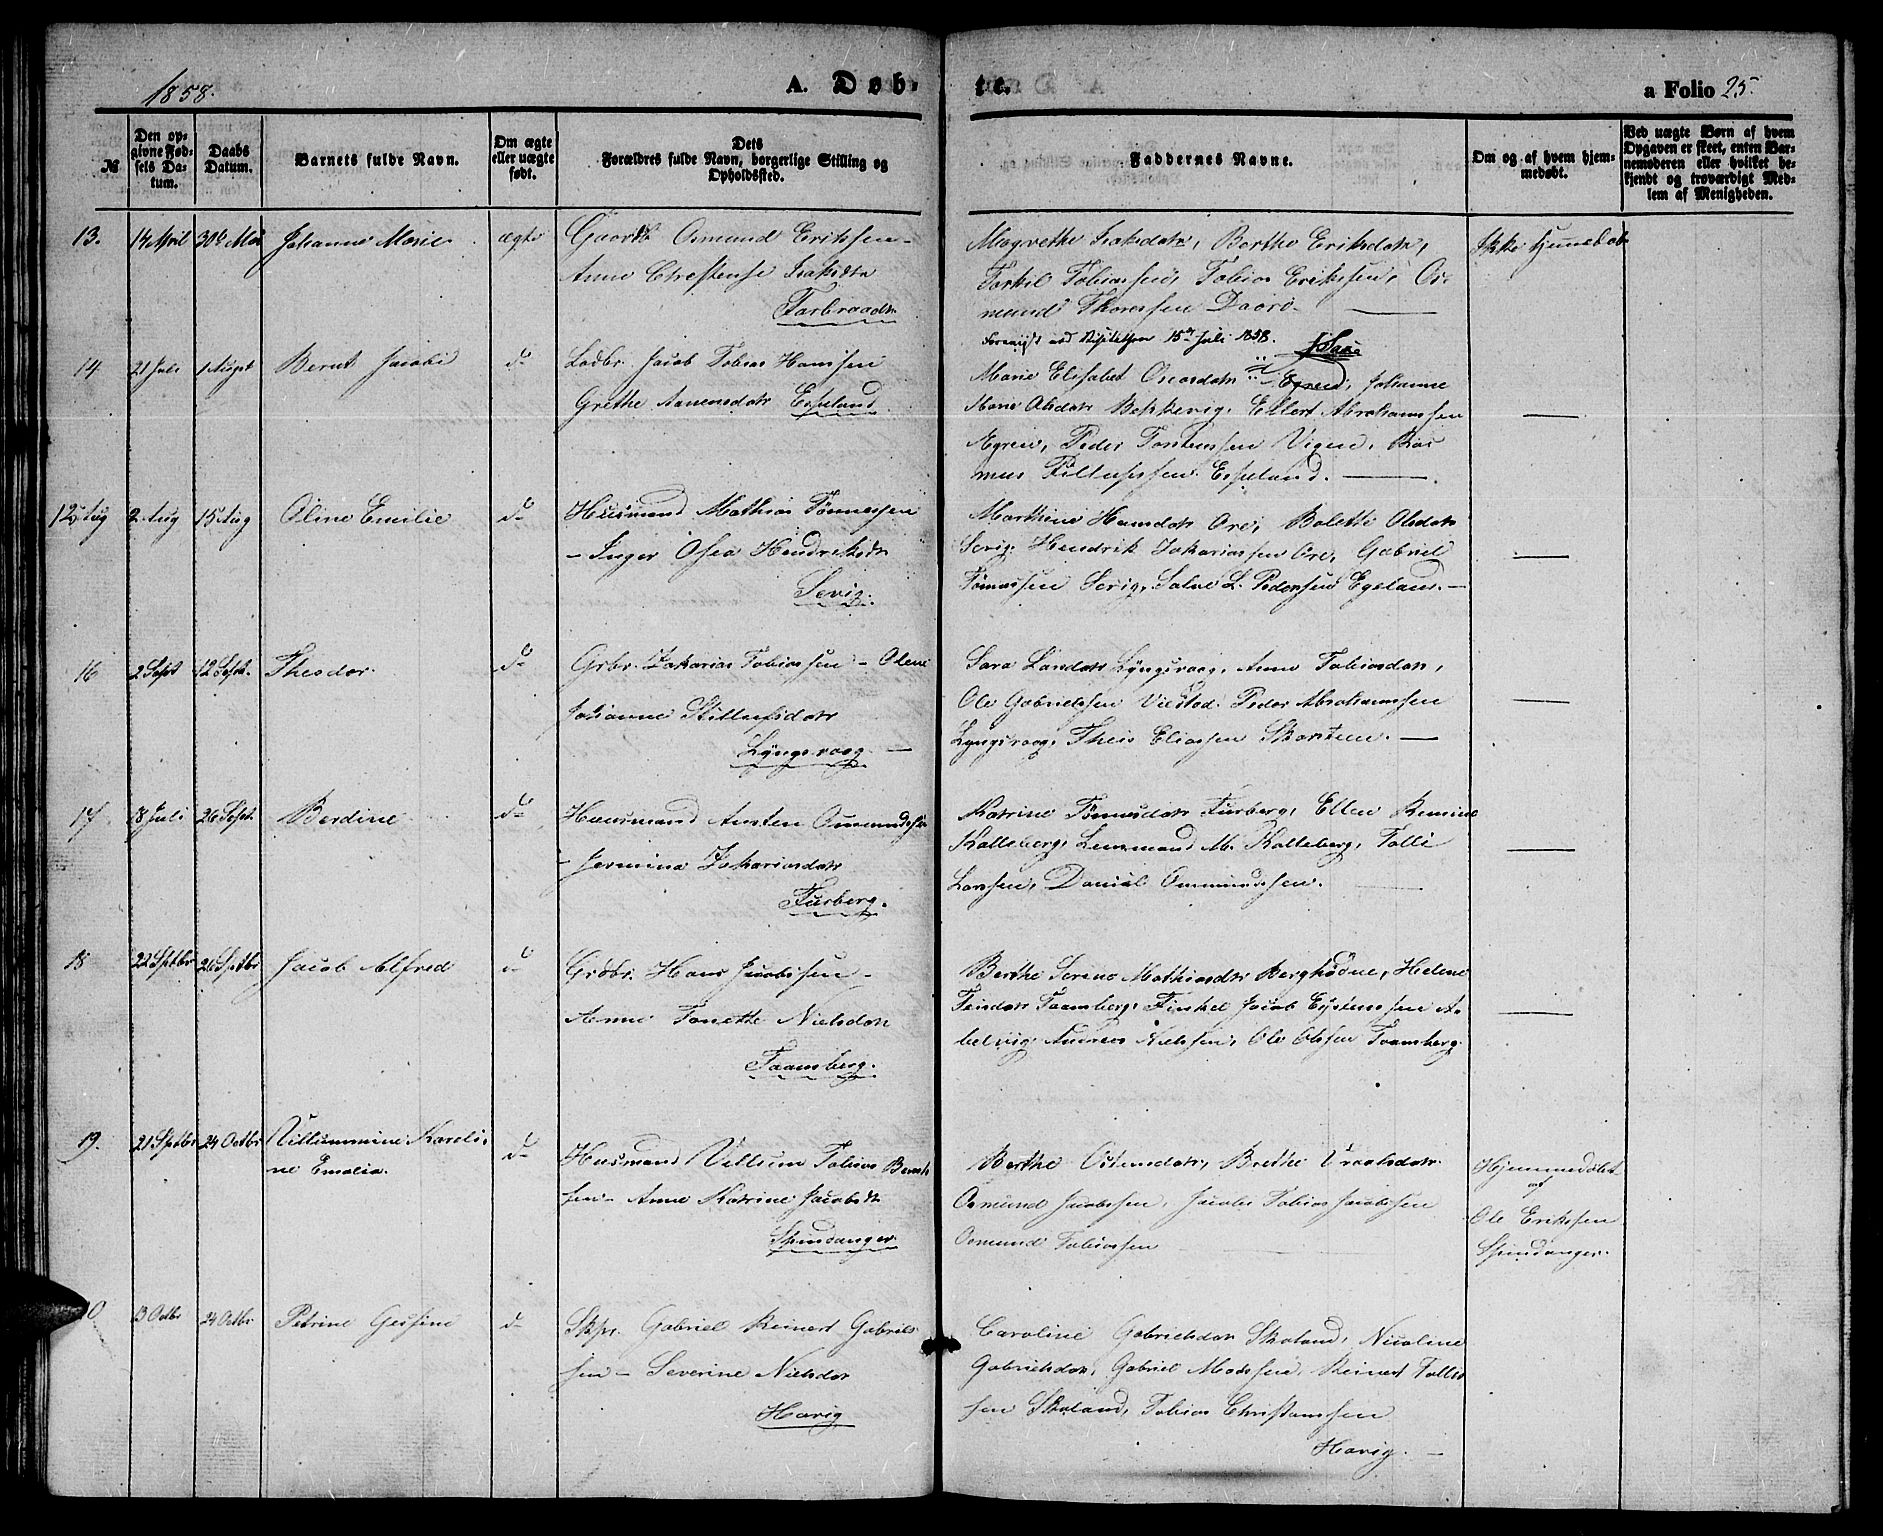 1858.
A. Døb-
te.
a Folio 25.
№
Den op-
givne Fød-
sels Da-
tum.
Daabs
Datum.
Barnets fulde Navn.
Om ægte
eller uægte
født.
Dets
Forældres fulde Navn, borgerlige Stilling og
Opholdssted.
Faddernes Navne.
Om og af hvem hjem-
medøbt.
Ved uægte Børn af hvem
Opgaven er skeet, enten Bar-
nemoderen eller hvilket be-
kjendt og troværdigt Med-
lem af Menigheden.
13.
14 April
30te Mai
Johanne Marie
ægte
Gaardb Osmund Eriksen -
Anne Chrestense Isaksdtr
Farbraadt
Magrethe Isaksdatr, Berthe Eriksdatr,
Torkil Tobiassen, Tobias Erikssen, Os-
mund Thoressen Daarø.
Ikke hjemmedøbt
Foreviist ved Visitatsen 15de Juli 1858.
14
21 Juli
1 August
Bernt Jacobi
do
Lodbr. Jacob Tobias Hanssen
Grethe Aanensdatr Espeland
Marie Elisabet Oreasdatr Egreid, Johanne
Marie Olsdatr Bekkevig, Ellert Abrahamssen
Egrei, Peder Tønnessen Vigen, Ras
mus Tillufssen Espeland.
12 Aug
2 Aug
15 Aug
Oline Emilie
do
Husmand Mathias Tønnessen
- Inger Osea Hendriksdtr
Sevig.
Marthine Hansdatr Ore, Bolette Olsdatr
Sevig. Hendrik Zakariassen Ore, Gabriel
Tønnessen Sevig, Salve L. Pedersen Egeland.
16
2 Sept
12 Sept.
Theodor.
do
Grbr. Zakarias Tobiassen - Olene
Johanne Stillufsdatr
Lyngsvaag
Sara Larsdatr Lyngsvaag, Anne Tobiasdatr,
Ole Gabrielssen Viestad. Peder Abrahamssen
Lyngsvaag, Theis Eliassen Skarstein.
17
18 Juli
26 Sept.
Berdine
do
Huusmand Austen Osmundssen
- Jermina Zakariasdatr
Furberg.
Katrine Tønnesdatr Furberg, Ellen Remine
Kalleberg, Lensmand M. Kalleberg, Tolli
Larssen, Daniel Ommundssen.
18
22 Septbr
26 Septbr
Jacob Alfred
do
Grdbr. Hans Jacobssen -
Anne Tonette Nielsdatr
Taamberg.
Berthe Serine Mathiasdtr Berghødne, Helene
Teisdatr Taamberg, Finkel Jacob Eystenssen A-
belvig. Andreas Nielssen, Ole Olssen Taamberg.
19.
21 Septbr
24 Octbr
Villummine Kareli-
ne Emalia.
do
Husmand Villum Tobias Bernt-
sen - Anne Katrine Jacobsdtr
Spindanger.
Berthe Ostensdatr, Brethe Vraalsdatr
Osmund Jacobssen, Jacob Tobias Jacobssen
Osmund Tobiassen
Hjemmedøbt
af
Ole Erikssen
Spindanger.
0
13 Octbr
24 Octbr
Petrine Gessine
do
Skpr. Gabriel Reinert Gabriels-
sen - Severine Nielsdatr
Havig
Caroline Gabrielsdatr Skoland, Nicoline
Gabrielsdatr, Gabriel Madssen, Reinert Tollis-
sen Skoland, Tobias Christenssen
Havig.